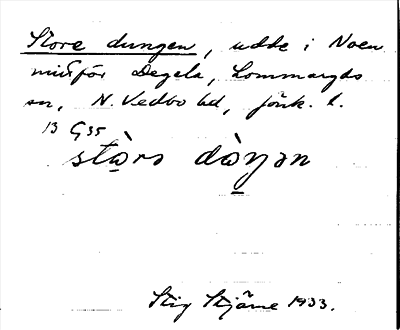 Store dungen, udde i Noen
mitför Degela, Lommaryds
sn, N. Vedbo hd, Jönk. l.
13 G35
stòrə dòŋən
Stig Stjärne 1933.